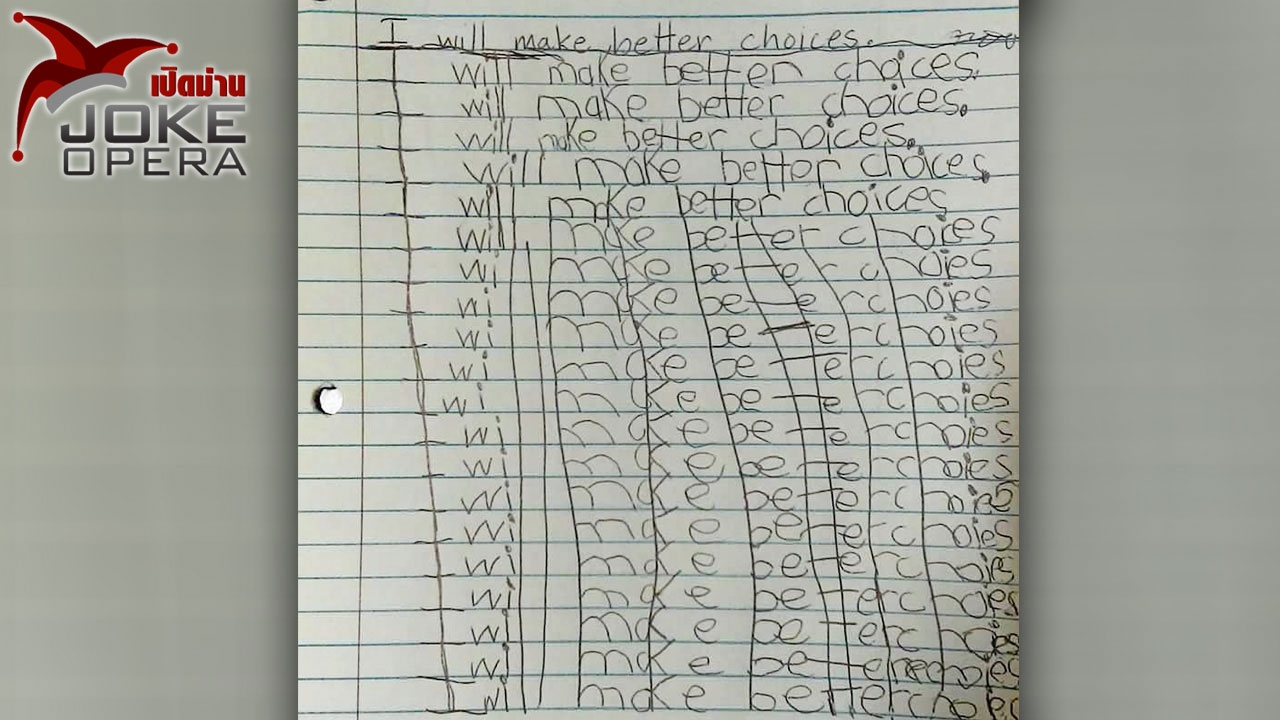 เปิดม่าน
JOKE
OPERA
I will make better choices.
I will make better choices.
I will make better choices.
I will make better choices.
I will make better choices.
I will make better choices
I will make better choies
I will make better choies
I will make better choies
I will make better choies
I will make better choies
I will make better choies
I will make better choies
I will make better choies
I will make better choies
I will make better choies
I will make better choies
I will make better choies
I will make better choies
I will make better choies
I will make better